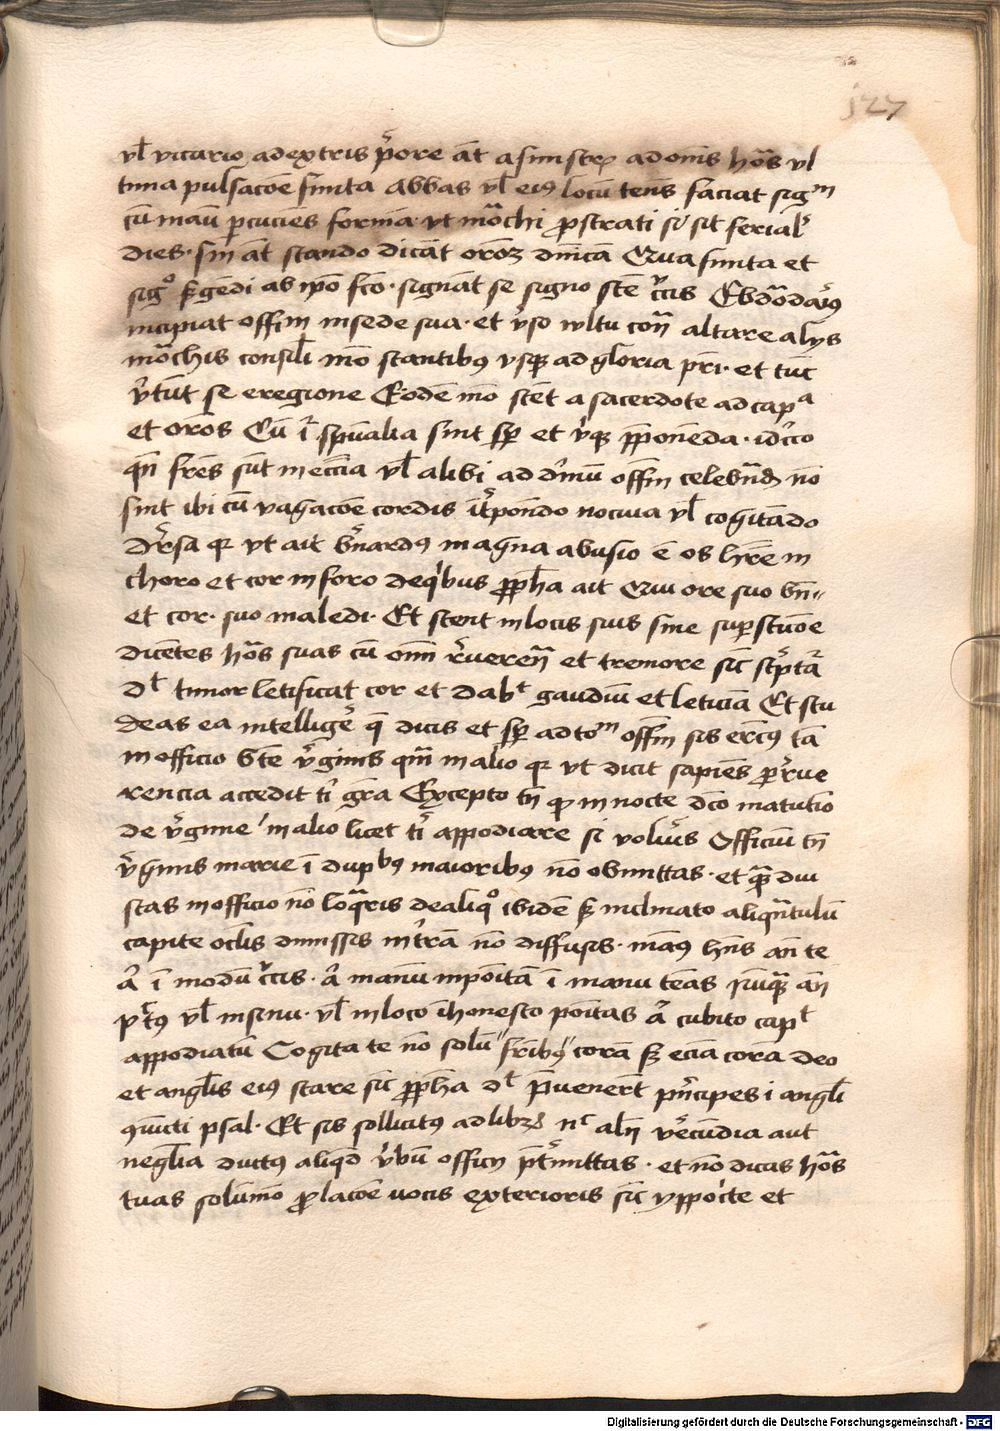 127
vl̄ vicario adextris p̄ore āt asinistrꝭ ad om̄s hōas vl
tima pulsacōe finita Abbas vl̄ eiꝰ locū tenēs faciat sigᵐ
cū manu ꝑcuciēs formā vt mōchi ꝓstrati si sit ferialˢ
dies · sin āt stando dicāt orōꝫ dn̄icā Qua finita et
sigº s̄gēdi ab ip̄o fc̄o · signāt se signo scē cͥcis Ebdōadāꝰ
incipiat offm̄ in sede sua · et v̄so vultu cont̄ altare alijs
mōchis consil̄i mō stantibꝰ vsqꝫ ad gloria pr̄i · et tūc
v̄tūt se eregione Eodē mō stēt a sacerdote ad capᵃ
et orōs Cū ī spūalia sint sꝑ et vͥqꝫ p̄ponēda · idc̄co
qn̄ frēs sūt in ecc̄ia vl̄ alibi ad diͥnū offm̄ celebrād̄ nō
sint ibi cū vagacōe cordis īt̄pondo nociua vl̄ cogitādo
diu̓sa qꝛ vt ait b̄nardꝰ magna abusio ē os hr̄e in
choro et cor in foro de qͥbus ꝓph̄a ait Qui ore suo bn̄ ·
et cor · suo maledi · Et stent in locis suis sine suꝑstic̄oe
dicētes hōas suas cū om̄i r̄uerēn̄ et tremore sic̄ scͥptā
dᵗ timor letificat cor et dabᵗ gaudiū et leticiā Et stu
deas ea intellige̓ q̄ dicis et sꝑ ad toᵐ offm̄ sis erc̄tꝰ tā
in officio btē v̄ginis qm̄ in alio qꝛ vt dicit sapiēs ꝓ r̄ue
rencia accedit tͥ gr̄a Excepto tn̄ ꝙ in nocte dc̄o matutīo
de v̄gine in alio licet tͥ appodiare si volu̓is Officiū tn̄
v̄ginis marie ī dupᵇꝰ maioribꝰ nō obmittas · et qᵃdiu
stas in officio nō loqᵃris de aliqº ibidē sꝫ inclinato aliqᵃntulū
capite oclis dimissis in t̄ram nō diffusis · manꝰ hn̄s an̄ te
aͥ ī modū cͥcis · aͥ manū inpoītā ī manu teās nūqᵃ an̄
pͭtꝰ vl̄ in sinu · vl̄ in loco īhonesto poītas aͥ cubito capᵗ
appodiatū Cogita te nō solū fribꝰ corā sꝫ eciā corā deo
et angl̄is eiꝰ stare sic̄ ꝓph̄a dᵗ P̄uenerūt pn̄cipes i angl̄i
9iūcti psal · Et sis sollicitꝰ ad libꝝ nᶜ alīn̄ v̄ecūdia aut
neglīa ductꝰ aliqd̄ v̄bū officij p̄tͥmittas · et nō dicas hōas
tuas solūmō ꝓlacōe vocis exterioris sic̄ yppoc̄te et
Digitalisierung gefördert durch die Deutsche Forschungsgemeinschaft - DFG